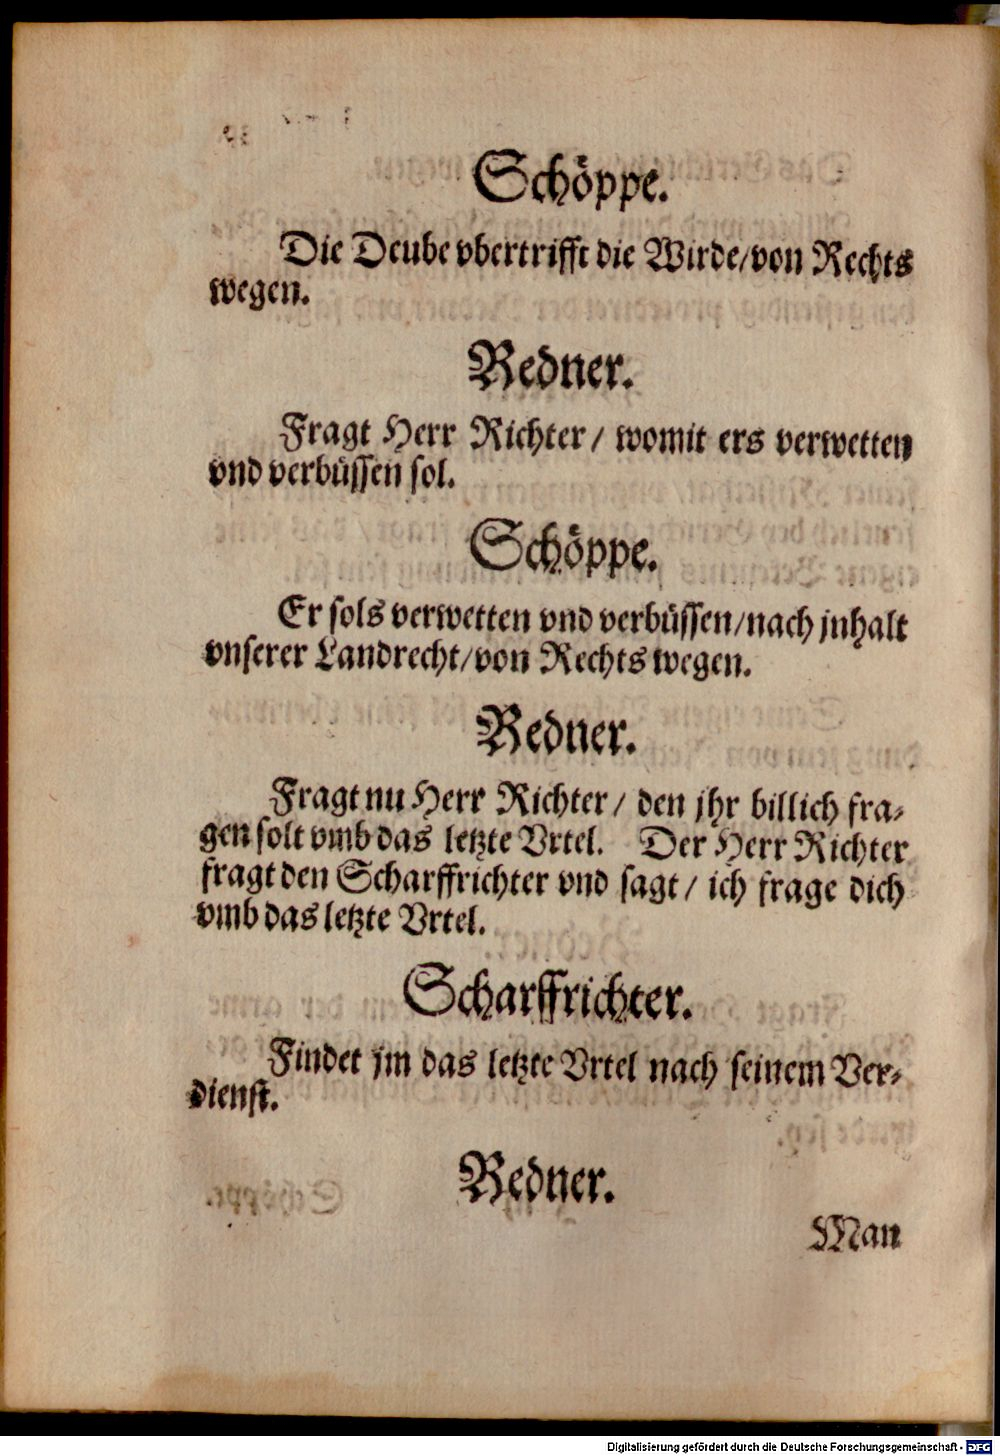 Schöppe.
Die Deube vbertrifft die Wirde/von Rechts
wegen.
Redner.
Fragt Herr Richter/ womit ers verwetten
vnd verbüssen sol.
Schöppe.
Er sols verwetten vnd verbüssen/nach jnhalt
vnserer Landrecht/von Rechts wegen.
Redner.
Fragt nu Herr Richter/ den jhr billich fra-
gen solt vmb das letzte Vrtel. Der Herr Richter
fragt den Scharffrichter vnd sagt/ ich frage dich
vmb das letzte Vrtel.
Scharffrichter.
Findet jm das letzte Vrtel nach seinem Ver-
dienst.
Redner.
Man
Digitalisierung gefördert durch die Deutsche Forschungsgemeinschaft - DFG